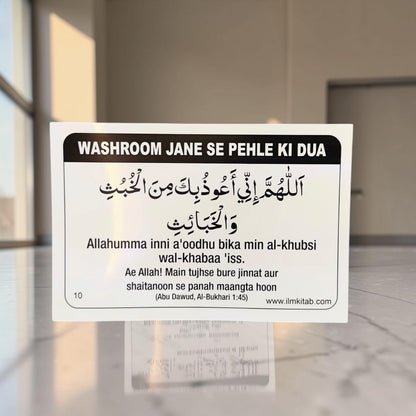 WASHROOM JANE SE PEHLE KI DUA
اَللّٰهُمَّ إِنِّي أَعُوذُ بِكَ مِنَ الْخُبُثِ
وَالْخَبَائِثِ
Allahumma inni a'oodhu bika min al-khubsi
wal-khabaa 'iss.
Ae Allah! Main tujhse bure jinnat aur
shaitanoon se panah maangta hoon
(Abu Dawud, Al-Bukhari 1:45)
10
www.ilmkitab.com